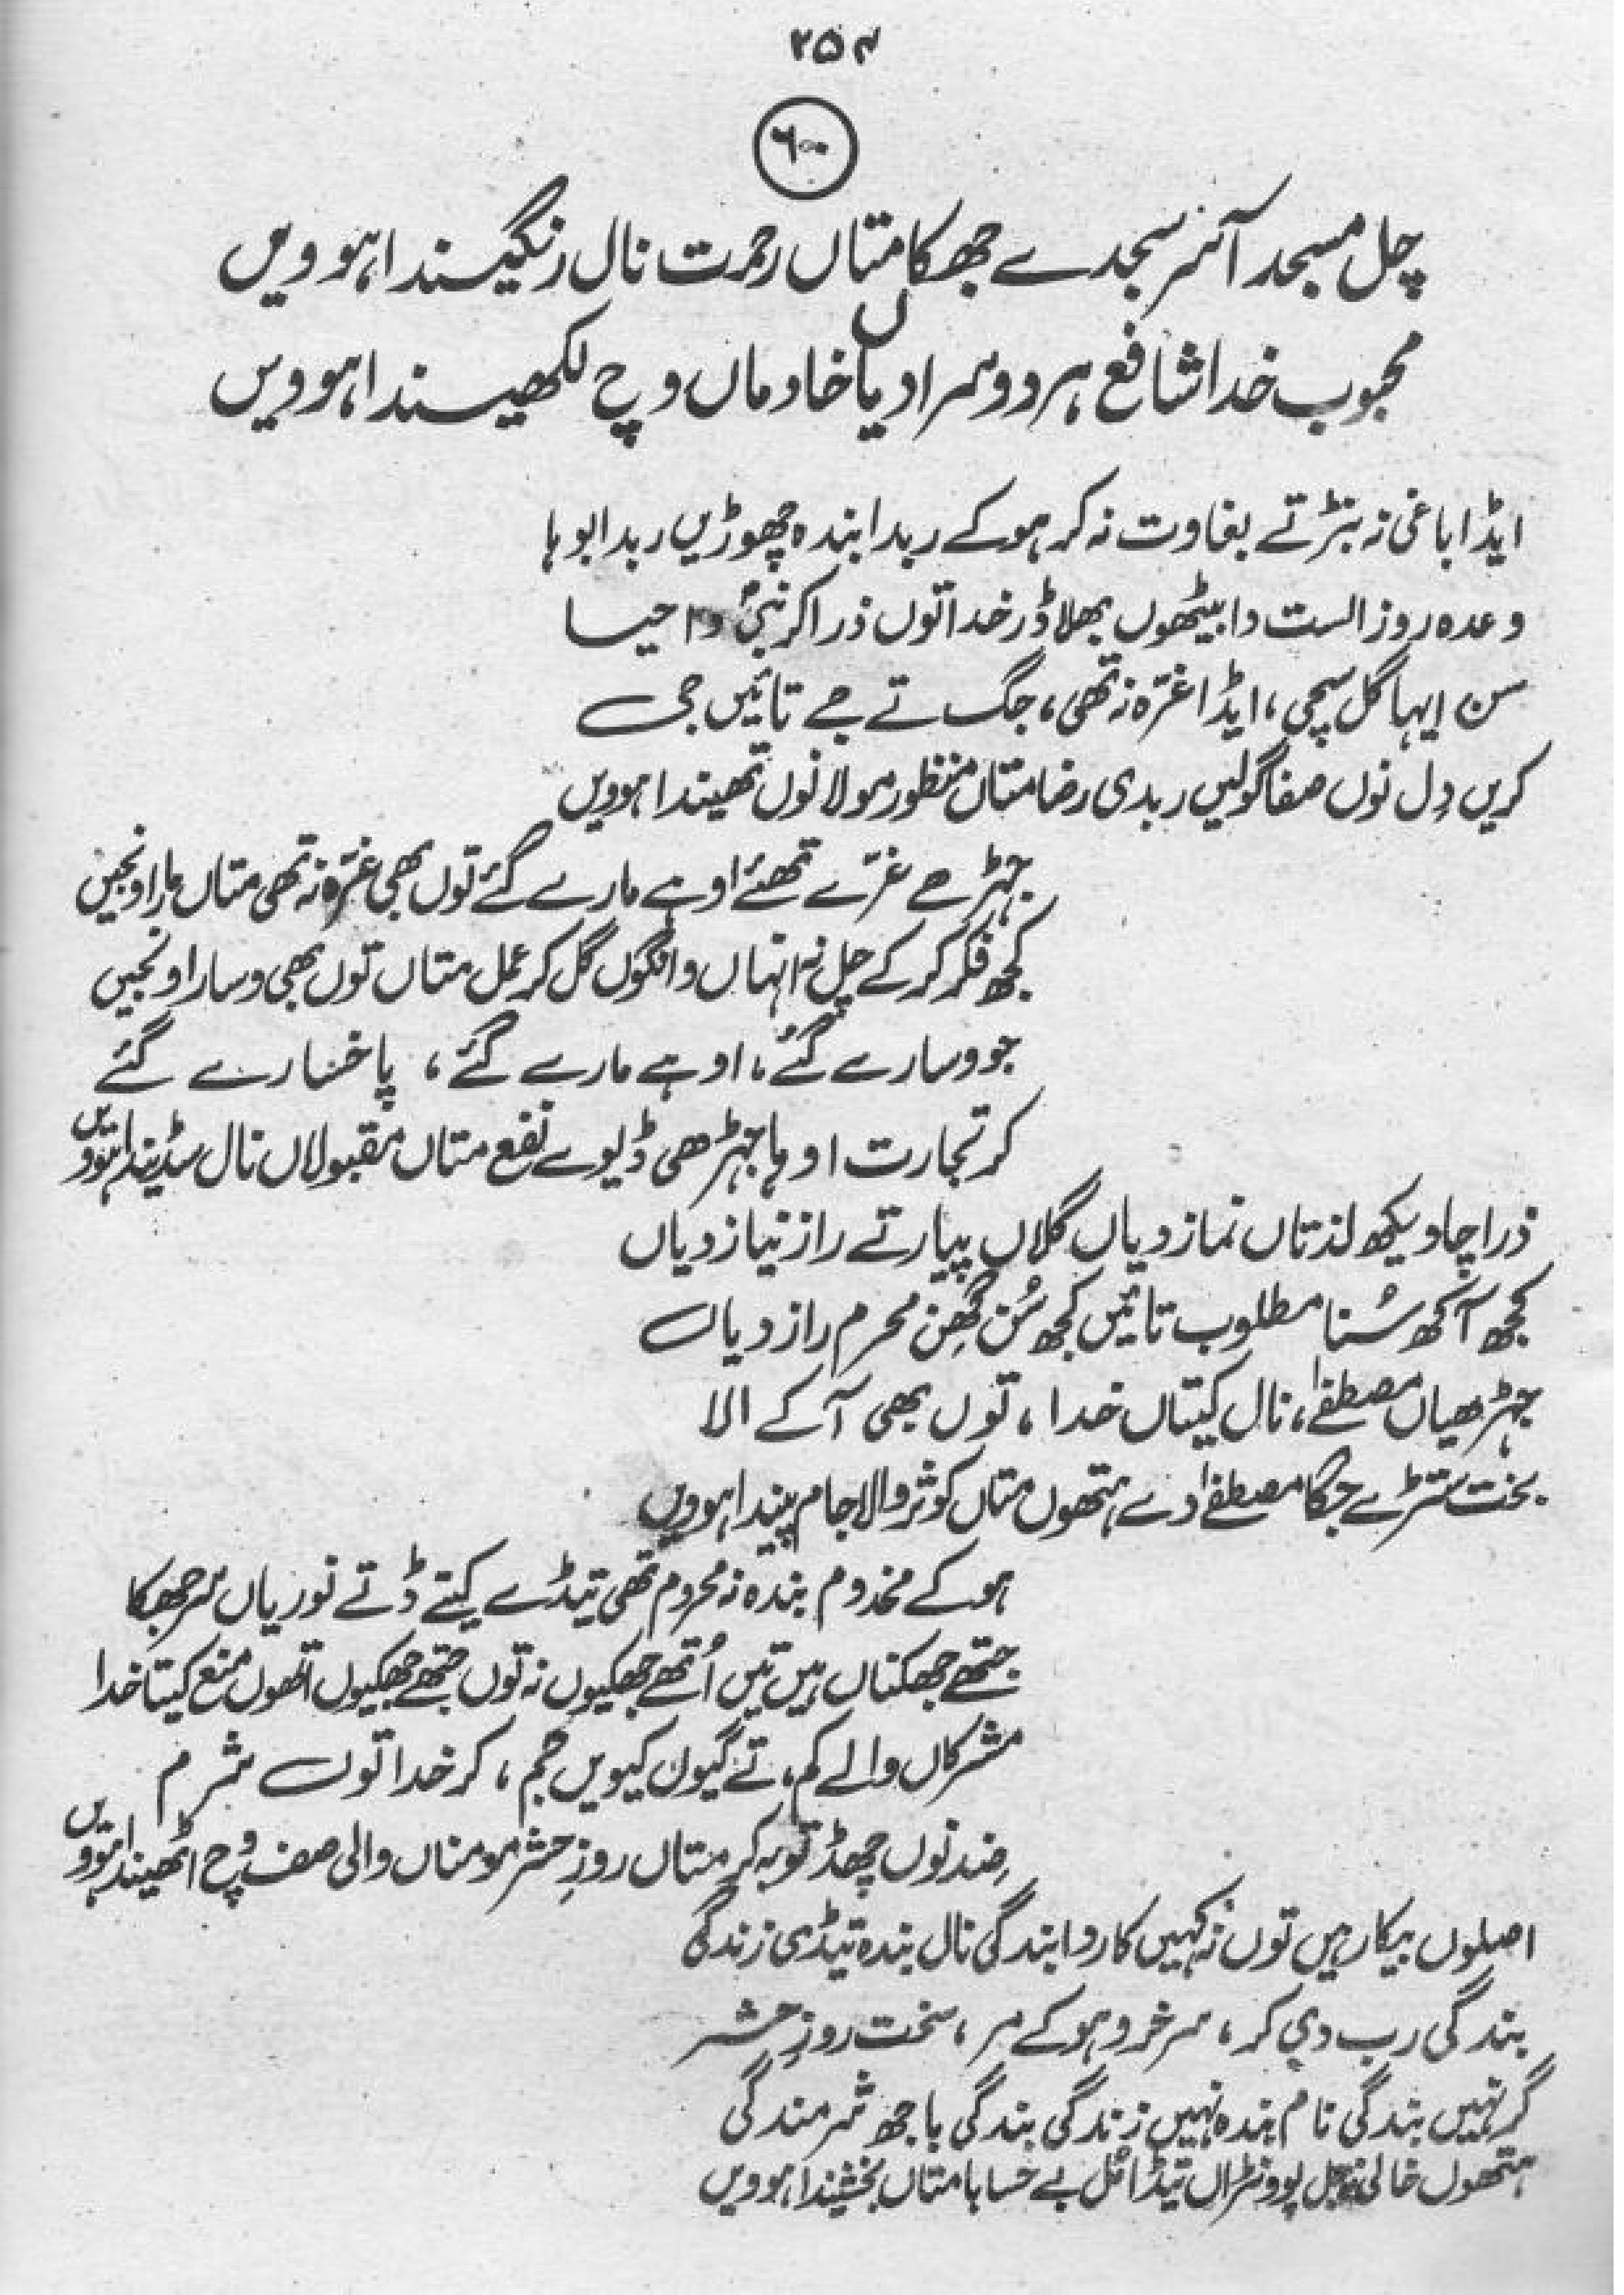 ۲۵۴
۶۰
چل مسجد آ سر سجدے جھکا متاں رحمت نال رنگیندا ہوویں
محبوب خدا شافع ہر دوسرا دیاں خادماں وچ لکھیندا ہوویں
ایڈا باغی نہ بنڑ تے بغاوت نہ کر ہو کے ربدا بندہ چھوڑیں ربدا بوہا
وعدہ روز الست دا بیٹھوں بھلا ڈر خدا توں ذرا کر نبیؐ دا حیا
سن ایہا گل سچی، ایڈا غرّہ نہ تھی، جگ تے جے تائیں جی
کریں دِل نوں صفا گولیں ربدی رضا متاں منظور مولا نوں تھیندا ہوویں
جہڑھے غرّے تھئے اوہے مارے گئے توں بھی غرّہ نہ تھی متاں مارا ونجیں
کجھ فکر کر کے چل نہ انہاں وانگوں گل کر عمل متاں توں بھی وسارا ونجیں
جو وسارے گئے، اوہے مارے گئے، پا خسارے گئے
کر تجارت اوہا جہڑھی ڈیوے نفع متاں مقبولاں نال سڈیندا ہوویں
ذرا چا ویکھ لذتاں نماز دیاں گلاں پیار تے راز نیاز دیاں
کجھ آکھ سُنا مطلوب تائیں کجھ سُن گِھن محرم راز دیاں
جہڑھیاں مصطفےٰ، نال کیتاں خدا، توں بھی آ کے الا
بخت ستڑے جگا مصطفےٰ دے ہتھوں متاں کوثر والا جام پیندا ہوویں
ہو کے مخدوم بندہ نہ محروم تھی تیڈے کیتے ڈتے نوریاں سر جھکا
جتھے جھکناں ہیں تیں اُتھے جھکیوں نہ توں جتھے جھکیوں اتھوں منع کیتا خدا
مشرکاں والے کم، تے گیوں کیویں جم، کر خدا توں شرم
ضد نوں چھڈ توبہ کر متاں روزِ حشر مومناں والی صف وچ اٹھیندا ہوویں
اصلوں بیکار ہیں توں نہ کہیں کار دا بندگی نال بندہ تیڈی زندگی
بندگی رب دی کر، سرخرو ہو کے مر، سخت روزِ حشر
گر نہیں بندگی نام بندہ نہیں زندگی بندگی باجھ شرمندگی
ہتھوں خالی نہ چل پوونڑاں تیڈا مُل بے حسابا متاں بخشیندا ہوویں